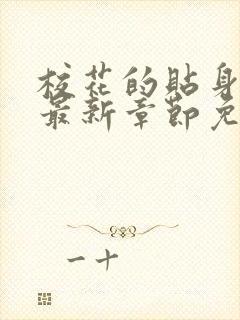 校花的贴身
最新章节免
一十